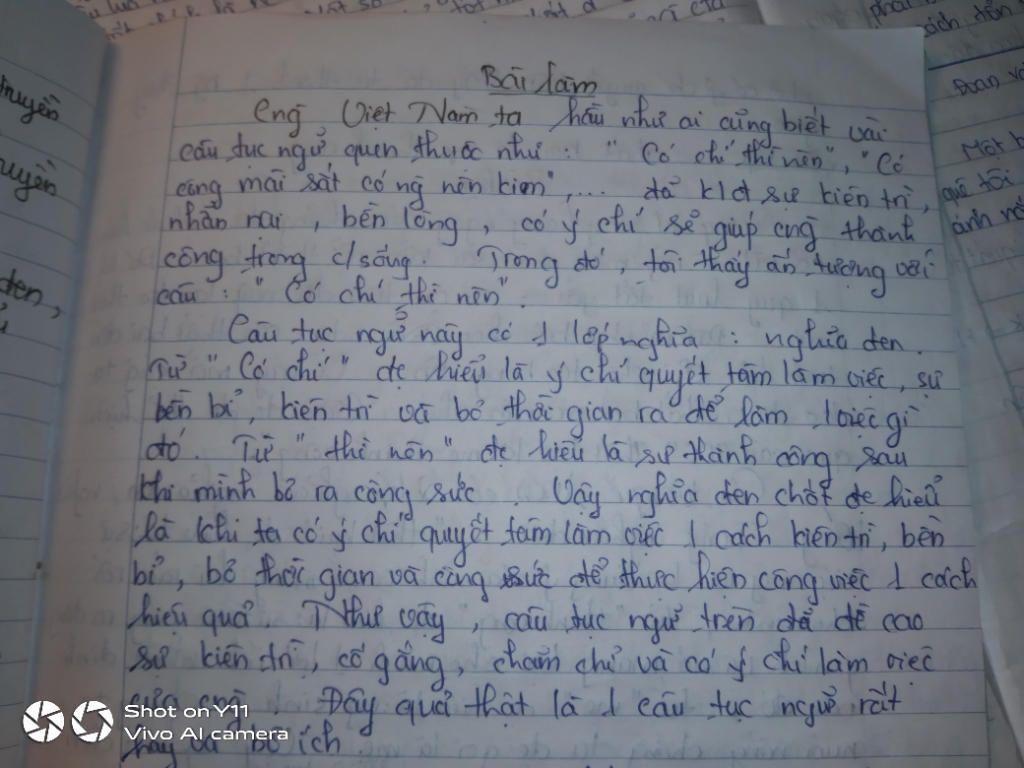 Bài làm
Cng Việt Nam ta hầu như ai cũng biết vài
câu tục ngữ quen thuộc như : "Có chí thì nên", "Có
công mài sắt có ng nên kim",... đã k/đ sự kiên trì,
nhẫn nại, bền lòng, có ý chí sẽ giúp cng thành
công trong c/sống. Trong đó, tôi thấy ấn tượng với
câu : "Có chí thì nên".
Câu tục ngữ này có 1 lớp nghĩa : nghĩa đen.
Từ "Có chí" đc hiểu là ý chí quyết tâm làm việc, sự
bền bỉ, kiên trì và bỏ thời gian ra để làm 1 việc gì
đó. Từ "thì nên" đc hiểu là sự thành công sau
khi mình bỏ ra công sức. Vậy nghĩa đen chốt đc hiểu
là khi ta có ý chí quyết tâm làm việc 1 cách kiên trì, bền
bỉ, bỏ thời gian và công sức để thực hiện công việc 1 cách
hiệu quả. Như vậy, câu tục ngữ trên đã đề cao
sự kiên trì, cố gắng, chăm chỉ và có ý chí làm việc
của cng. Đây quả thật là 1 câu tục ngữ rất
hay và bổ ích.
truyền
uyền
đen,
phải
sách, tấn
Đoạn vă
Một b
quê tôi
ánh nắ
Shot on Y11
Vivo AI camera